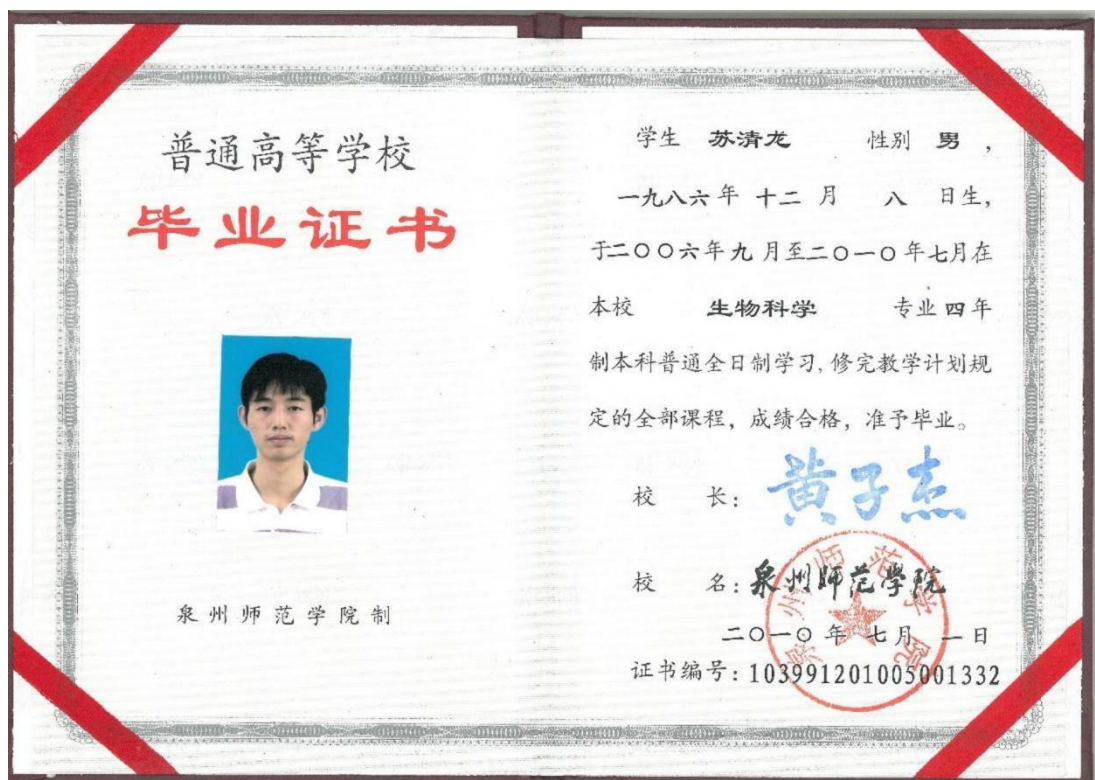 普通高等学校
毕业证书
泉州师范学院制
学生 苏清龙 性别 男，
一九八六年 十二 月 八 日生，
于二〇〇六年九月至二〇一〇年七月在
本校 生物科学 专业四年
制本科普通全日制学习，修完教学计划规
定的全部课程，成绩合格，准予毕业。
校 长：黄子杰
校 名：泉州师范学院
二〇一〇年七月一日
证书编号：103991201005001332
泉州师范学院